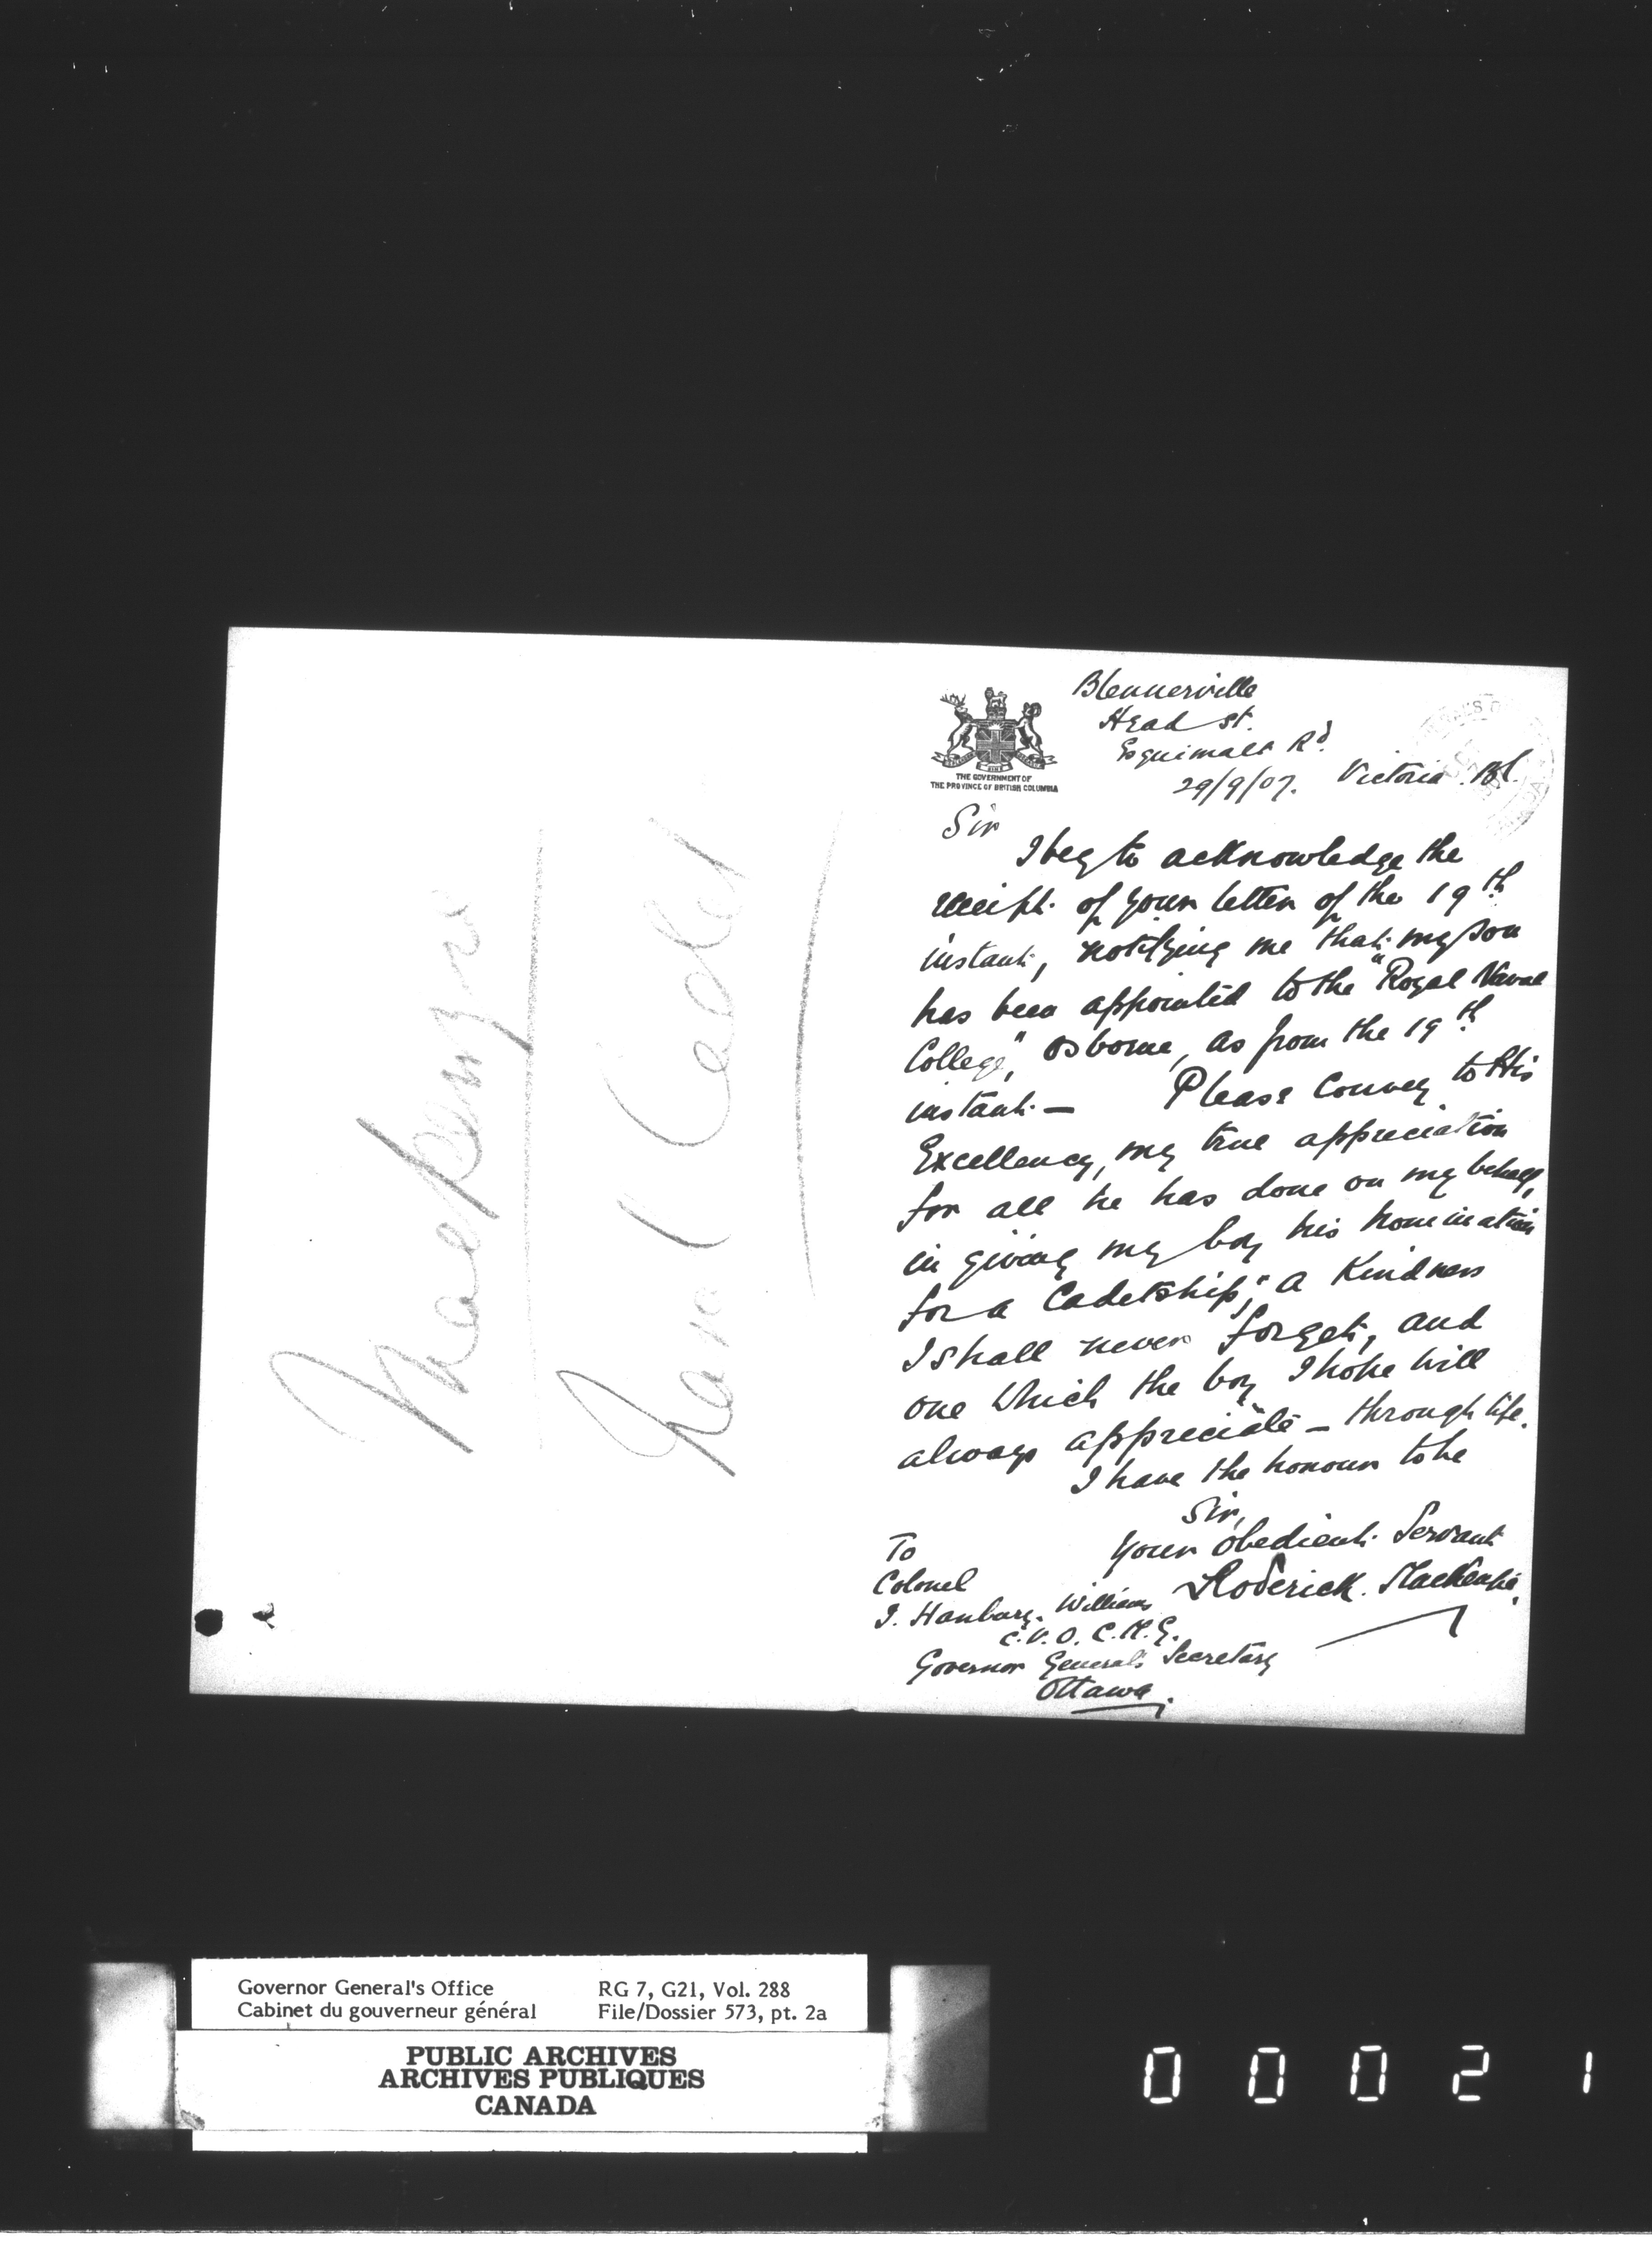 Mackenzie
Naval Cadet
THE GOVERNMENT OF
THE PROVINCE OF BRITISH COLUMBIA
Blennerville
Head St.
Esquimalt Rd.
29/9/07. Victoria. BC.
Sir
I beg to acknowledge the
receipt of your letter of the 19th
instant, notifying me that my son
has been appointed to the "Royal Naval
College", Osborne, as from the 19th
instant — Please Convey to His
Excellency, my true appreciation
for all he has done on my behalf,
in giving my boy his nomination
for a Cadetship; a Kindness
I shall never forget, and
one which the boy I hope will
always appreciate — through life.
I have the honour to be
Sir,
Your obedient Servant
Roderick. Mackenzie.
To
Colonel
J. Hanbury. Williams
C.V.O. C.M.G.
Governor General's Secretary
Ottawa.
Governor General's Office
Cabinet du gouverneur général
RG 7, G21, Vol. 288
File/Dossier 573, pt. 2a
PUBLIC ARCHIVES
ARCHIVES PUBLIQUES
CANADA
00021